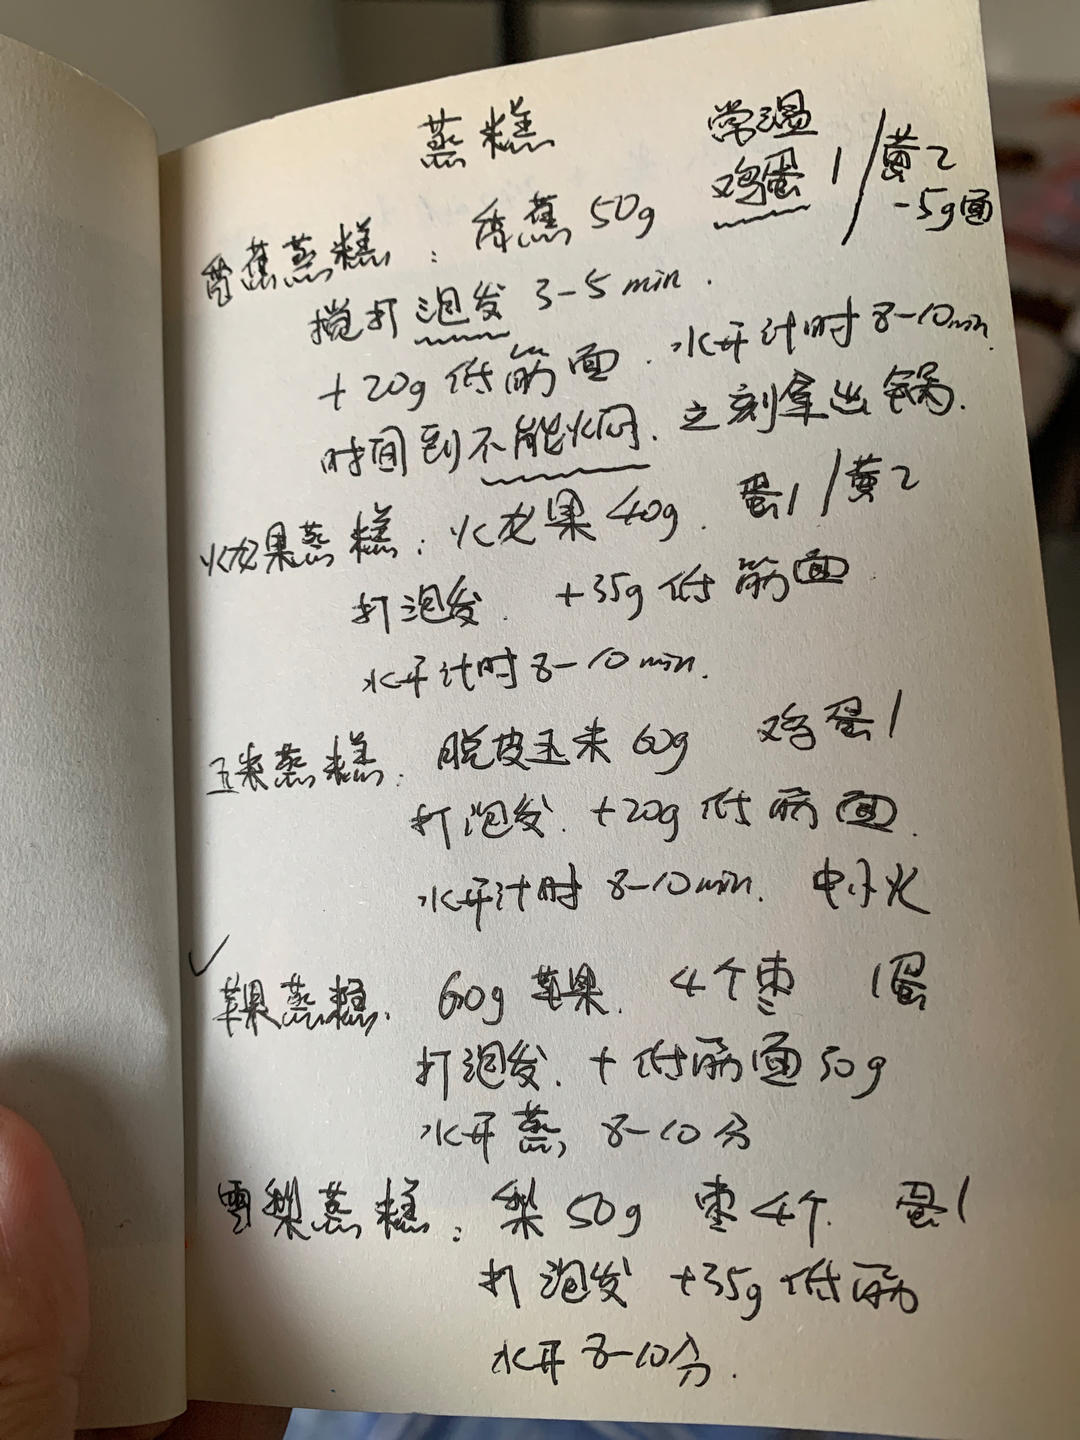 蒸糕
常温
香蕉蒸糕：香蕉50g 鸡蛋1/黄2
-5g面
搅打泡发3-5min.
+20g低筋面.水开计时8-10min
时间到不能火闷.立刻拿出锅.
火龙果蒸糕：火龙果40g.蛋1/黄2
打泡发. +35g低筋面
水开计时8-10min.
玉米蒸糕：脱皮玉米60g 鸡蛋1
打泡发.+20g低筋面.
水开计时8-10min. 中小火
✓
苹果蒸糕. 60g苹果. 4个枣 1蛋
打泡发.+低筋面50g
水开蒸 8-10分
雪梨蒸糕：梨50g 枣4个. 蛋1
打泡发 +35g低筋
水开8-10分.